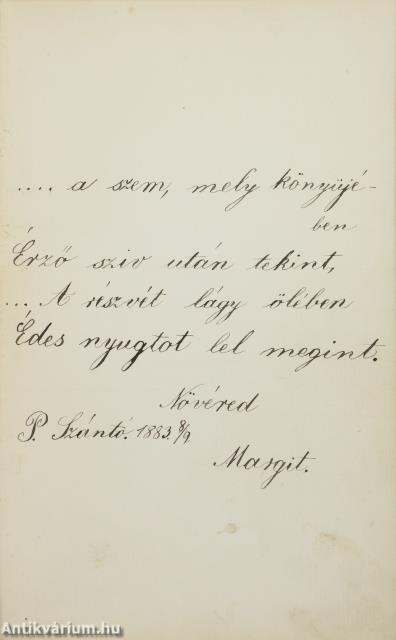 .... a szem, mely könyüjé-
ben
Érző sziv után tekint,
... A részvét lágy ölében
Édes nyugtot lel megint.
Nővéred
P. Szántó. 1883. 8/9
Margit.
Antikvárium.hu